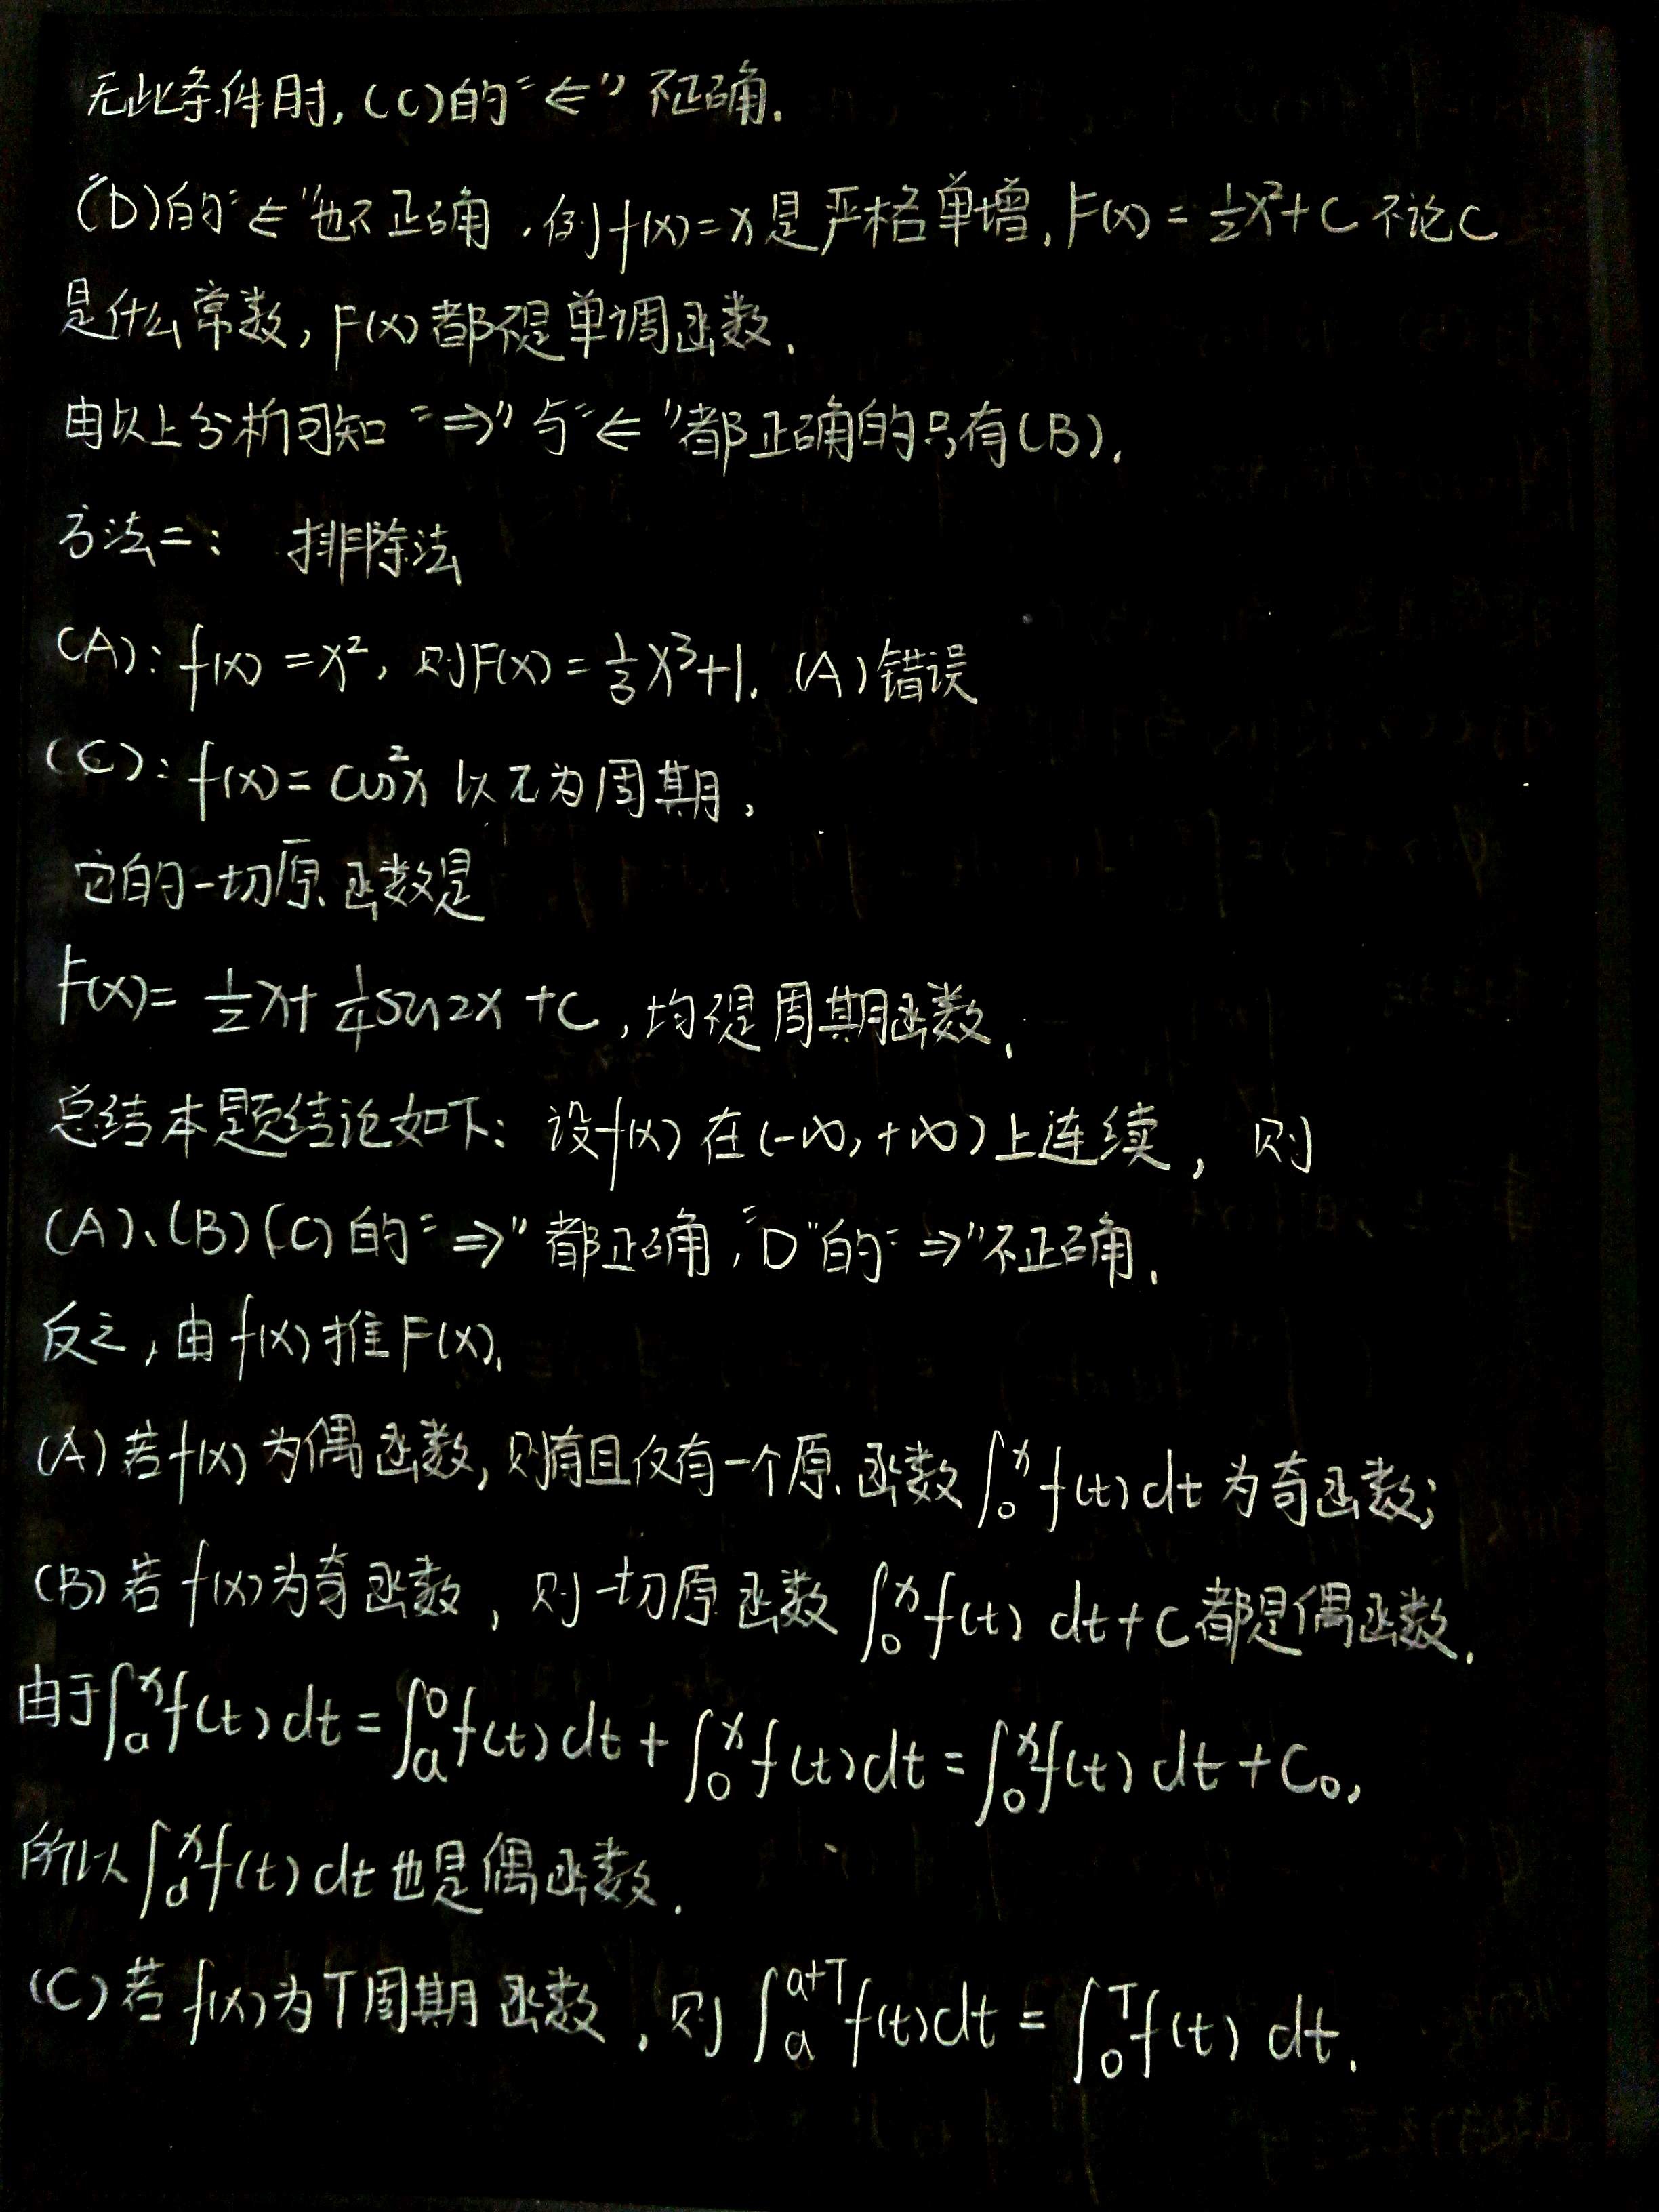 无此条件时,(C)的"⇐"不正确.
(D)的"⇐"也不正确.例f(x)=x是严格单增,F(x)=½x²+C不论C
是什么常数,F(x)都不是单调函数.
由以上分析可知"⇒"与"⇐"都正确的只有(B).
方法二: 排除法
(A): f(x)=x², 则F(x)=⅓x³+1. (A)错误
(C): f(x)=cos²x 以π为周期,
它的一切原函数是
F(x)=½x+¼sin2x+C,均不是周期函数.
总结本题结论如下: 设f(x)在(-∞,+∞)上连续, 则
(A)、(B)(C)的"⇒"都正确,"D"的"⇒"不正确.
反之,由f(x)推F(x).
(A)若f(x)为偶函数,则有且仅有一个原函数∫₀ˣf(t)dt为奇函数;
(B)若f(x)为奇函数,则一切原函数∫₀ˣf(t)dt+C都是偶函数.
由于∫ₐˣf(t)dt=∫ₐ⁰f(t)dt+∫₀ˣf(t)dt=∫₀ˣf(t)dt+C₀,
所以∫ₐˣf(t)dt也是偶函数.
(C)若f(x)为T周期函数,则∫ₐᵃ⁺ᵀf(t)dt=∫₀ᵀf(t)dt.